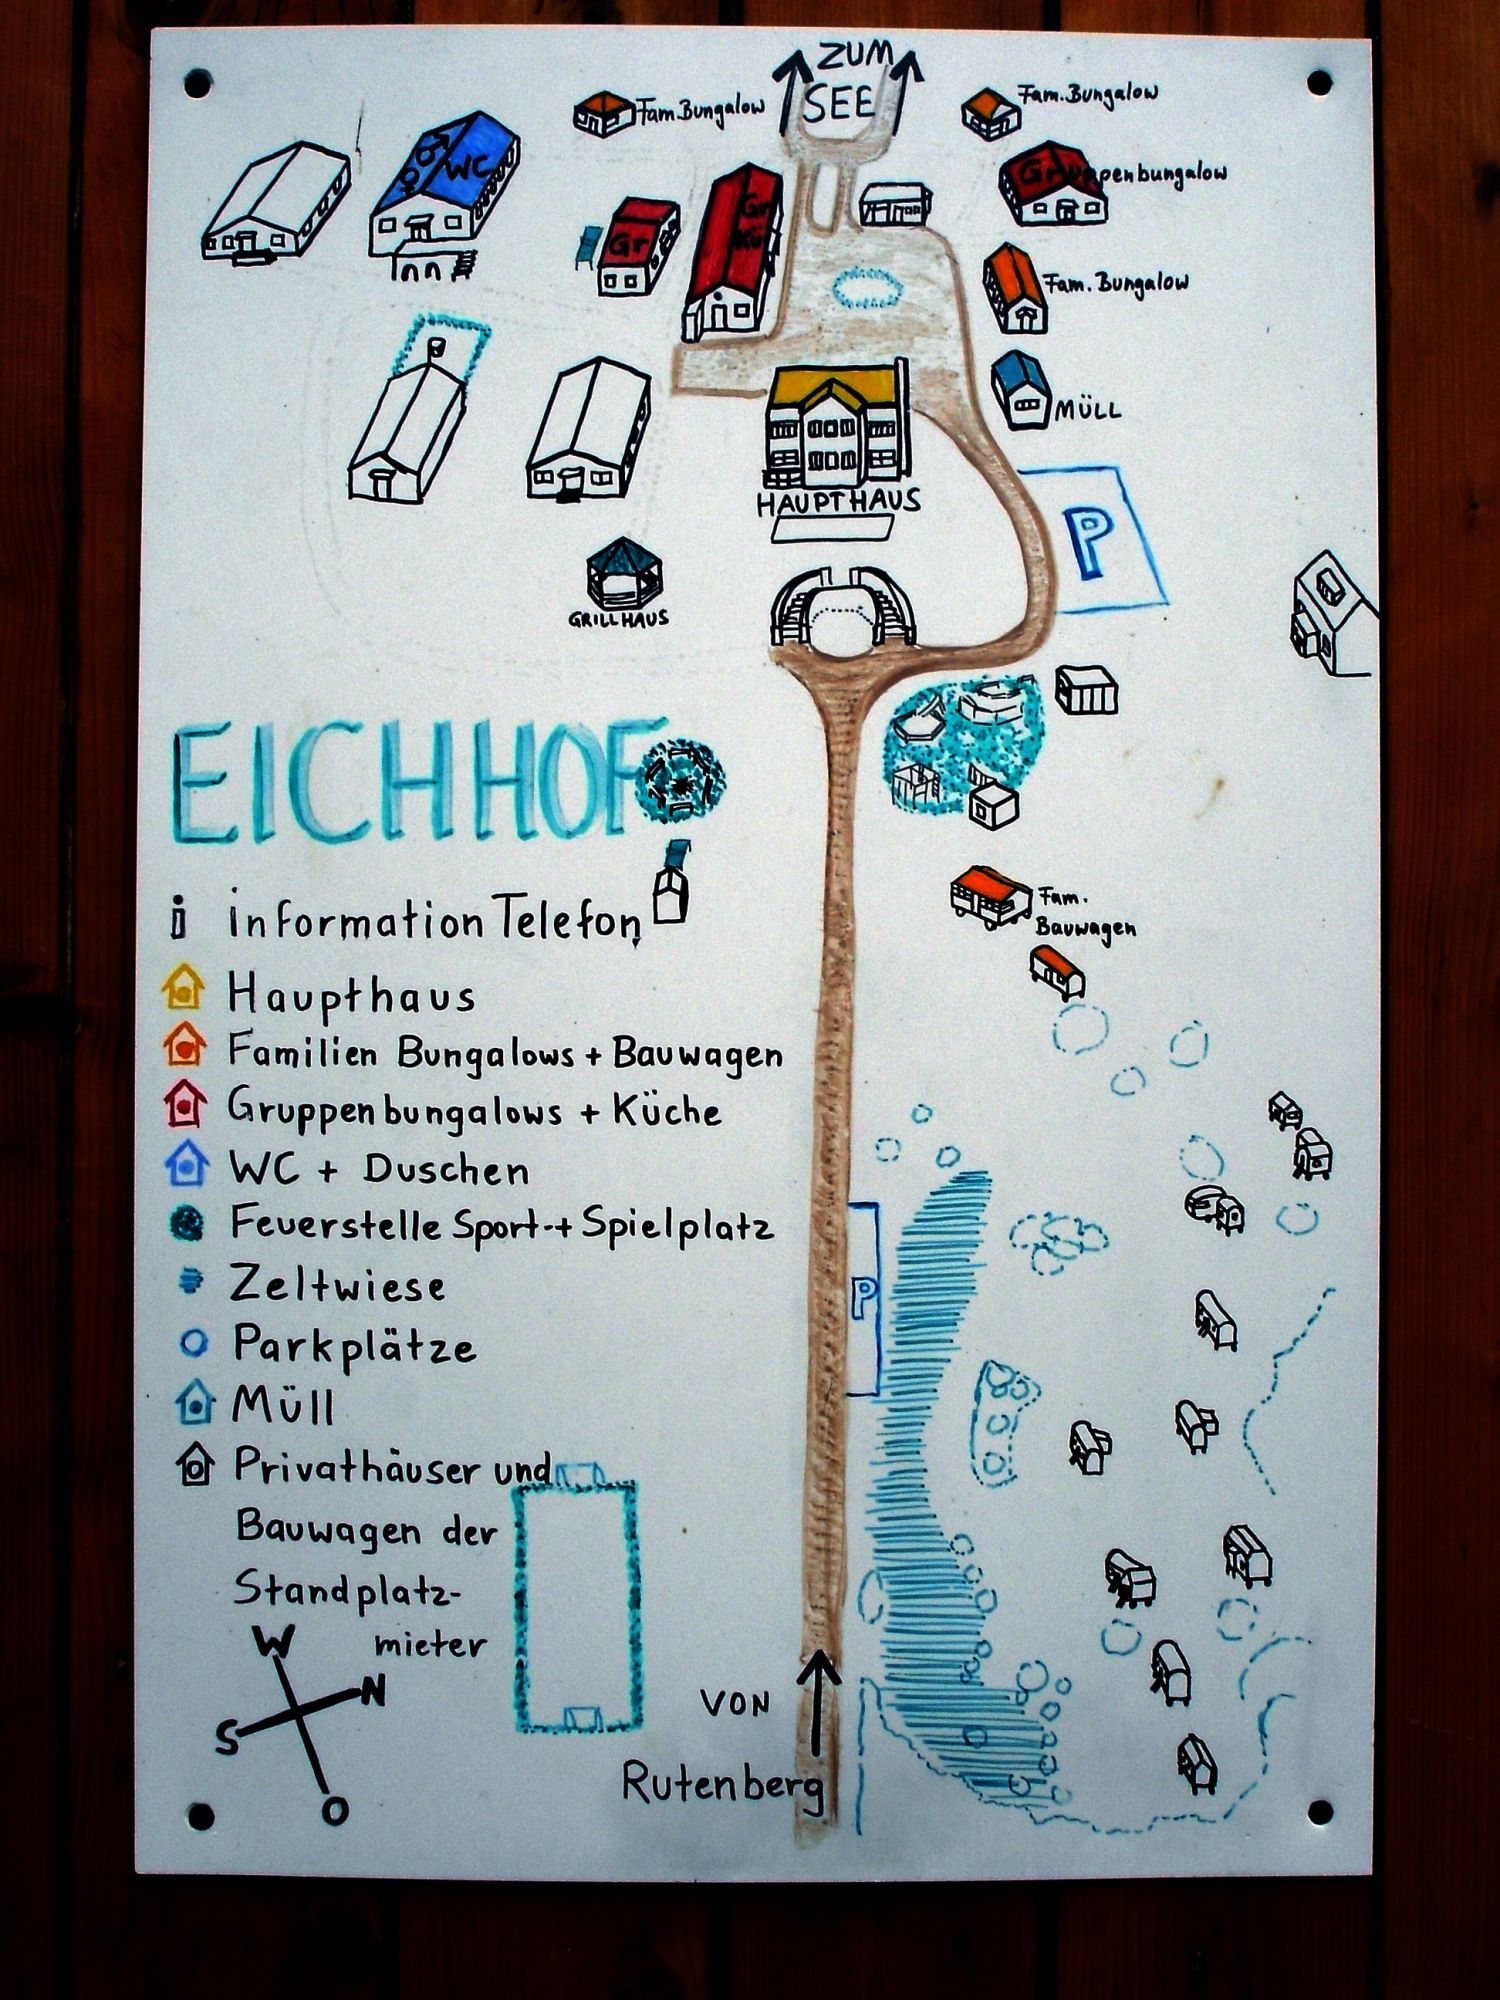 ZUM
SEE
Fam.Bungalow
Fam.Bungalow
WC
Gr
Gr
Kü
Gruppenbungalow
Fam. Bungalow
MÜLL
HAUPTHAUS
P
GRILLHAUS
EICHHOF
i information Telefon
Haupthaus
Familien Bungalows + Bauwagen
Gruppenbungalows + Küche
WC + Duschen
Feuerstelle Sport-+ Spielplatz
Zeltwiese
Parkplätze
Müll
Privathäuser und
Bauwagen der
Standplatz-
mieter
Fam.
Bauwagen
P
W
N
S
O
VON
Rutenberg